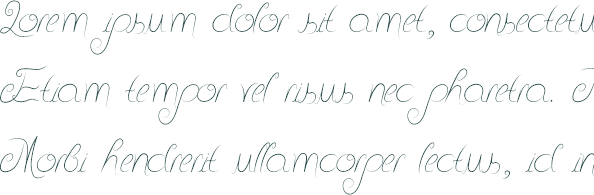 Lorem ipsum dolor sit amet, consectetu
Etiam tempor vel risus nec pharetra.
Morbi hendrerit ullamcorper lectus, id in